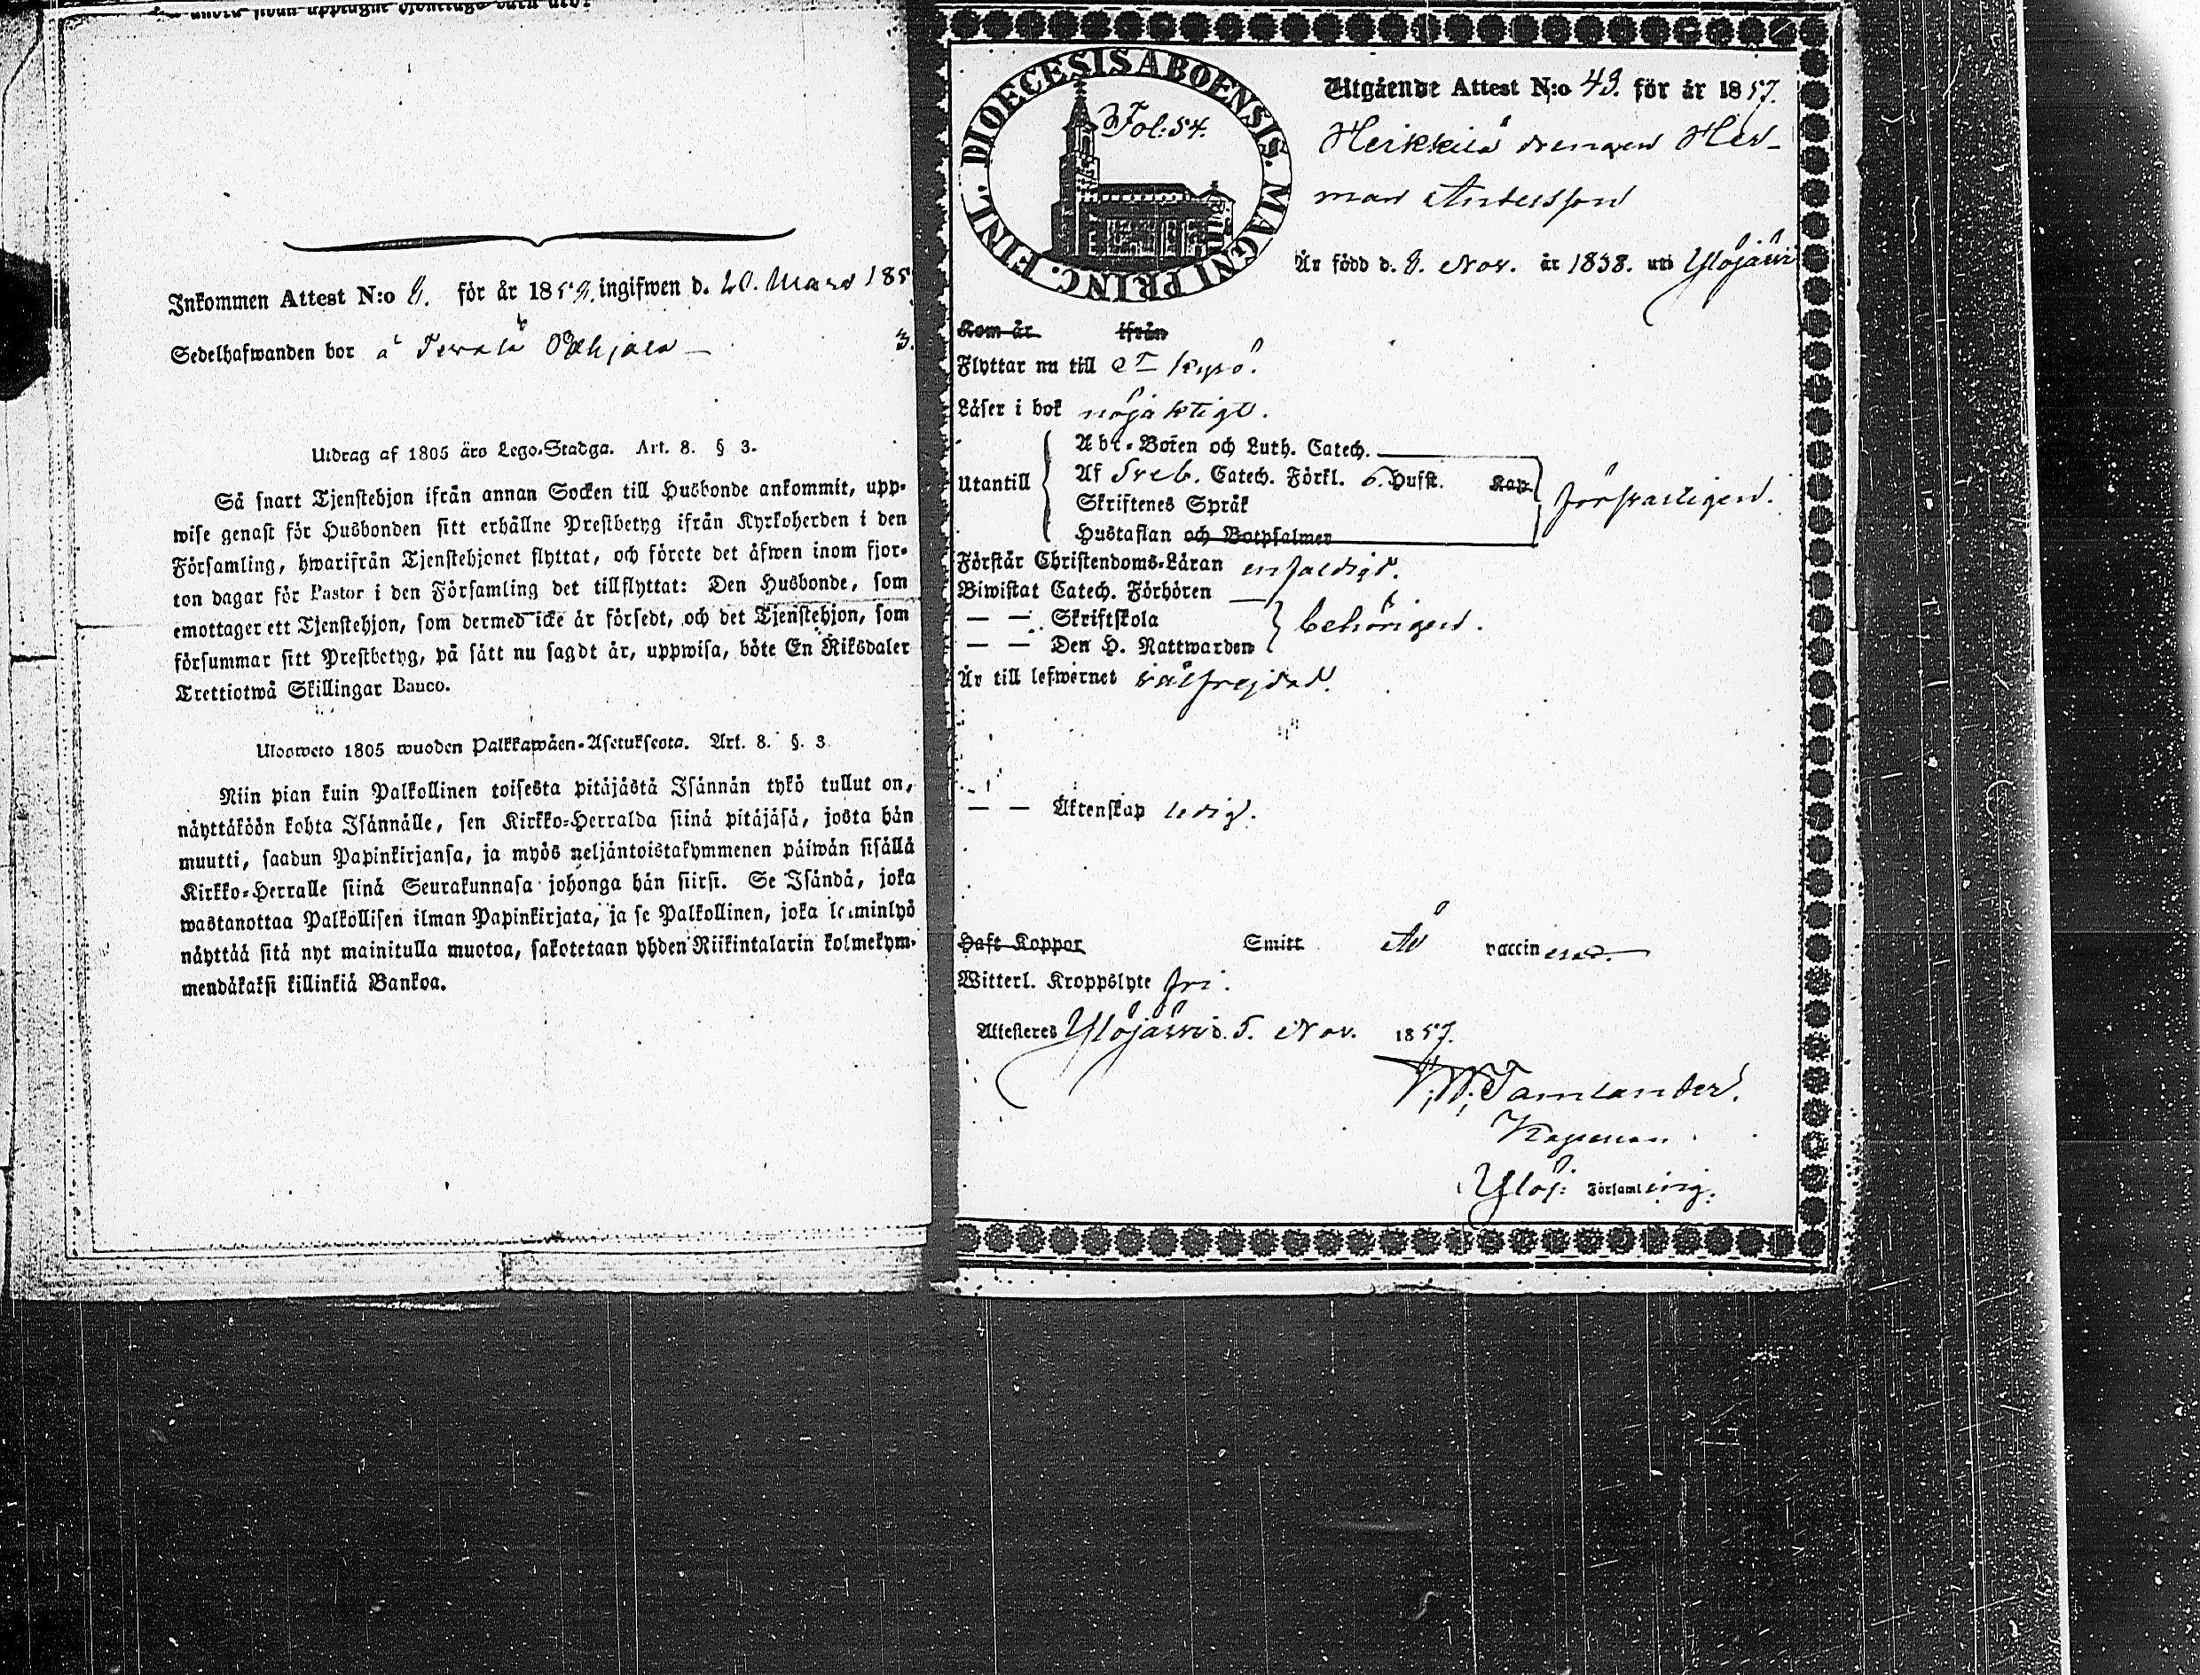 Inkommen Attest N:o 8. för år 1859, ingifwen d. 20. Mars 185
Sedelhafwanden bor å
3.
Utdrag af 1805 års Lego-Stadga. Art. 8. § 3.
Så snart Tjenstehjon ifrån annan Socken till Husbonde ankommit, upp-
wise genast för Husbonden sitt erhållne Prestbetyg ifrån Kyrkoherden i den
Församling, hwarifrån Tjenstehjonet flyttat, och förete det äfwen inom fjor-
ton dagar för Pastor i den Församling det tillflyttat: Den Husbonde, som
emottager ett Tjenstehjon, som dermed icke är försedt, och det Tjenstehjon, som
försummar sitt Prestbetyg, på sätt nu sagdt är, uppwisa, böte En Riksdaler
Trettiotwå Skillingar Banco.
Ulosweto 1805 wuoden Palkkawäen-Asetuksesta. Art. 8. §. 3.
Niin pian kuin Palkollinen toisesta pitäjästä Isännän tykö tullut on,
näyttäköön kohta Isännälle, sen Kirkko-Herralda siinä pitäjäsä, josta hän
muutti, saadun Papinkirjansa, ja myös neljäntoistakymmenen päiwän sisällä
Kirkko-Herralle siinä Seurakunnasa johonga hän siirsi. Se Isändä, joka
wastanottaa Palkollisen ilman Papinkirjata, ja se Palkollinen, joka laiminlyö
näyttää sitä nyt mainitulla muotoa, sakotetaan yhden Riikintalarin kolmekym-
mendäkaksi killinkiä Bankoa.
DIOECESIS ABOENSIS. MAGNI PRINC. FINL.
Fol: 54.
Utgående Attest N:o 43. för år 1857.
Heikkilä drengen Her-
man Andersson
Är född d. 8. Nov. år 1838. uti Ylöjärvi
Kom år ifrån
Flyttar nu till St Kyrö.
Läser i bok nöjaktigt.
Utantill
Abc-Boken och Luth. Catech.
Af Sveb. Catech. Förkl. 6. Hufst. Kap.
Skriftenes Språk
Hustaflan och Botpsalmer
försvarligen.
Förstår Christendoms-Läran enfaldigt.
Biwistat Catech. Förhören
— — Skriftskola
— — Den H. Nattwarden
behörigen.
Är till lefwernet välfrejdad.
— — Äktenskap ledig.
Haft Koppor Smitt Är vaccinerad.
Witterl. Kroppslyte fri.
Attesteres Ylöjärvi d. 5. Nov. 1857.
Tamlander.
Kapellan.
Ylöj: Församling.